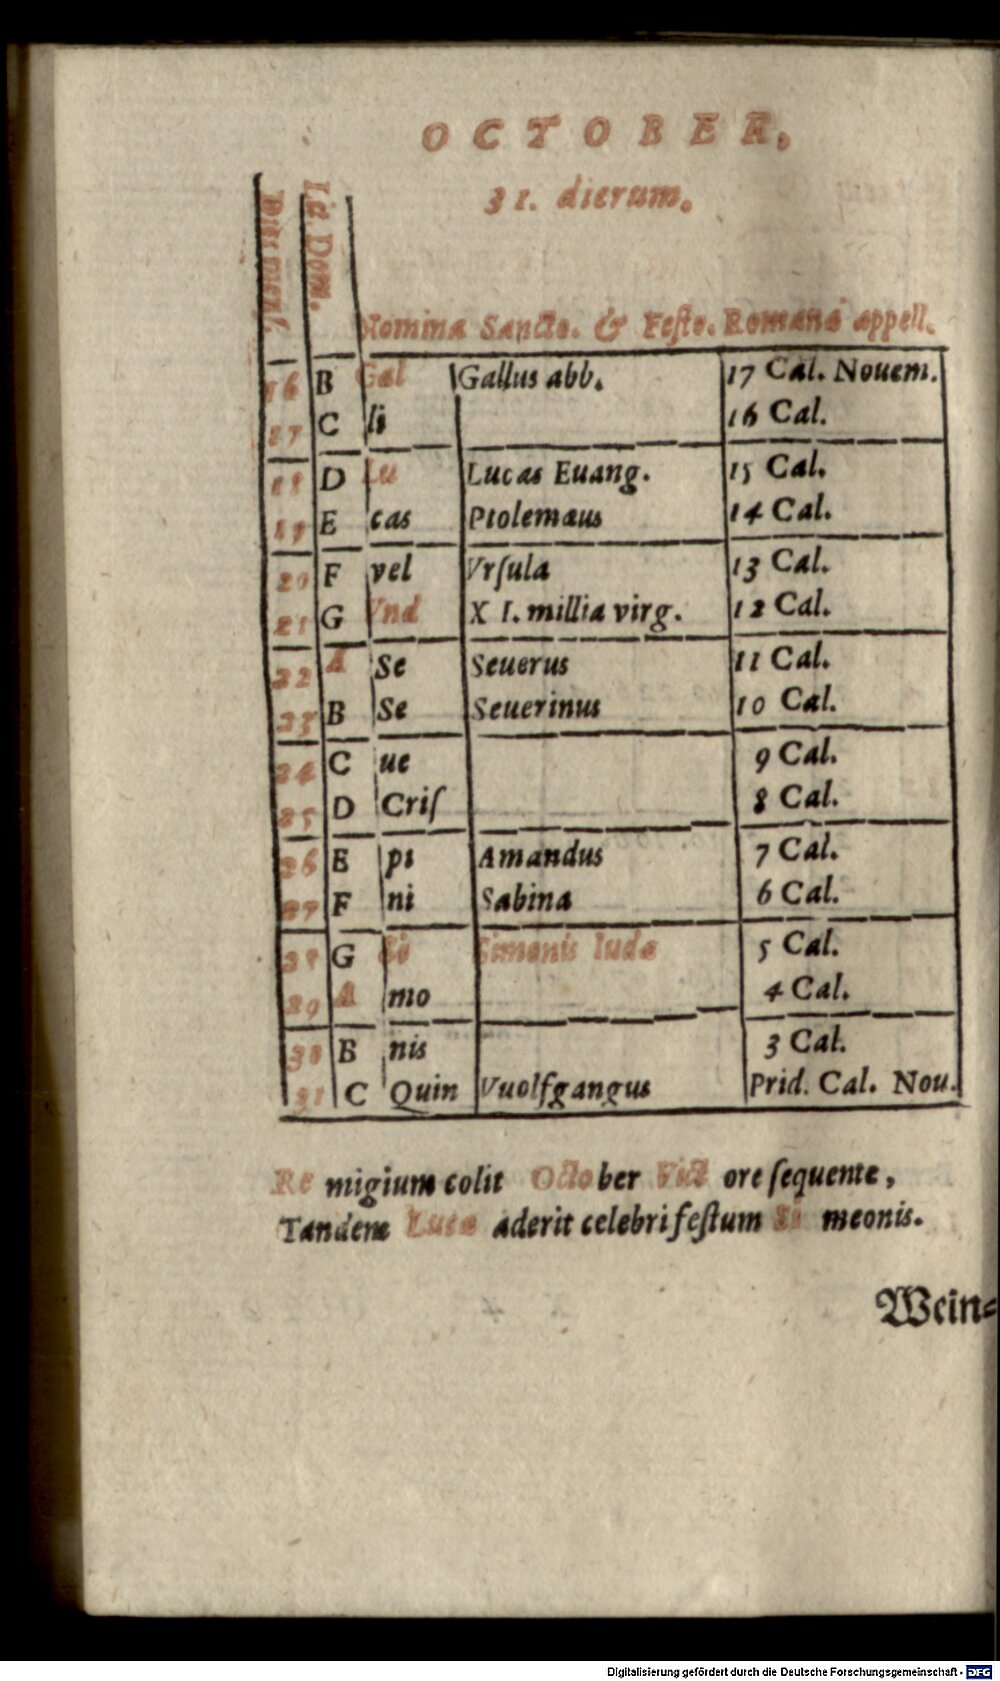 OCTOBER,
31. dierum.
Dies mens.
Lit. Dom.
Nomina Sancto. & Festo. Romana appell.
16 B Gal Gallus abb. 17 Cal. Nouem.
17 C li 16 Cal.
18 D Lu Lucas Euang. 15 Cal.
19 E cas Ptolemæus 14 Cal.
20 F vel Vrſula 13 Cal.
21 G Vnd X I. millia virg. 12 Cal.
22 A Se Seuerus 11 Cal.
23 B Se Seuerinus 10 Cal.
24 C ue 9 Cal.
25 D Criſ 8 Cal.
26 E pi Amandus 7 Cal.
27 F ni Sabina 6 Cal.
28 G Si Simonis Iudæ 5 Cal.
29 A mo 4 Cal.
30 B nis 3 Cal.
31 C Quin Vuolfgangus Prid. Cal. Nou.
Re migium colit October Vict ore ſequente,
Tandem Lucæ aderit celebri feſtum Si meonis.
Wein⸗
Digitalisierung gefördert durch die Deutsche Forschungsgemeinschaft - DFG